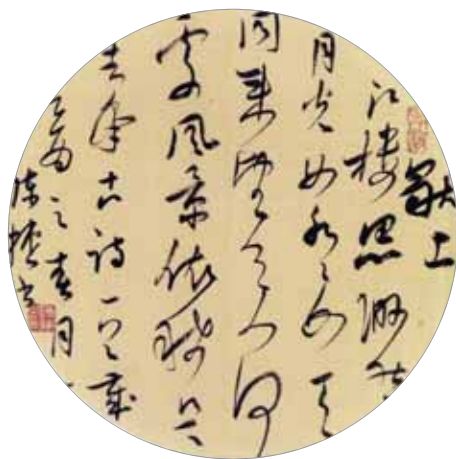 獨上
江樓思渺然
月光如水々如天
同來望月人何
處風景依稀似
去年古詩一首歲
之春月
陳書